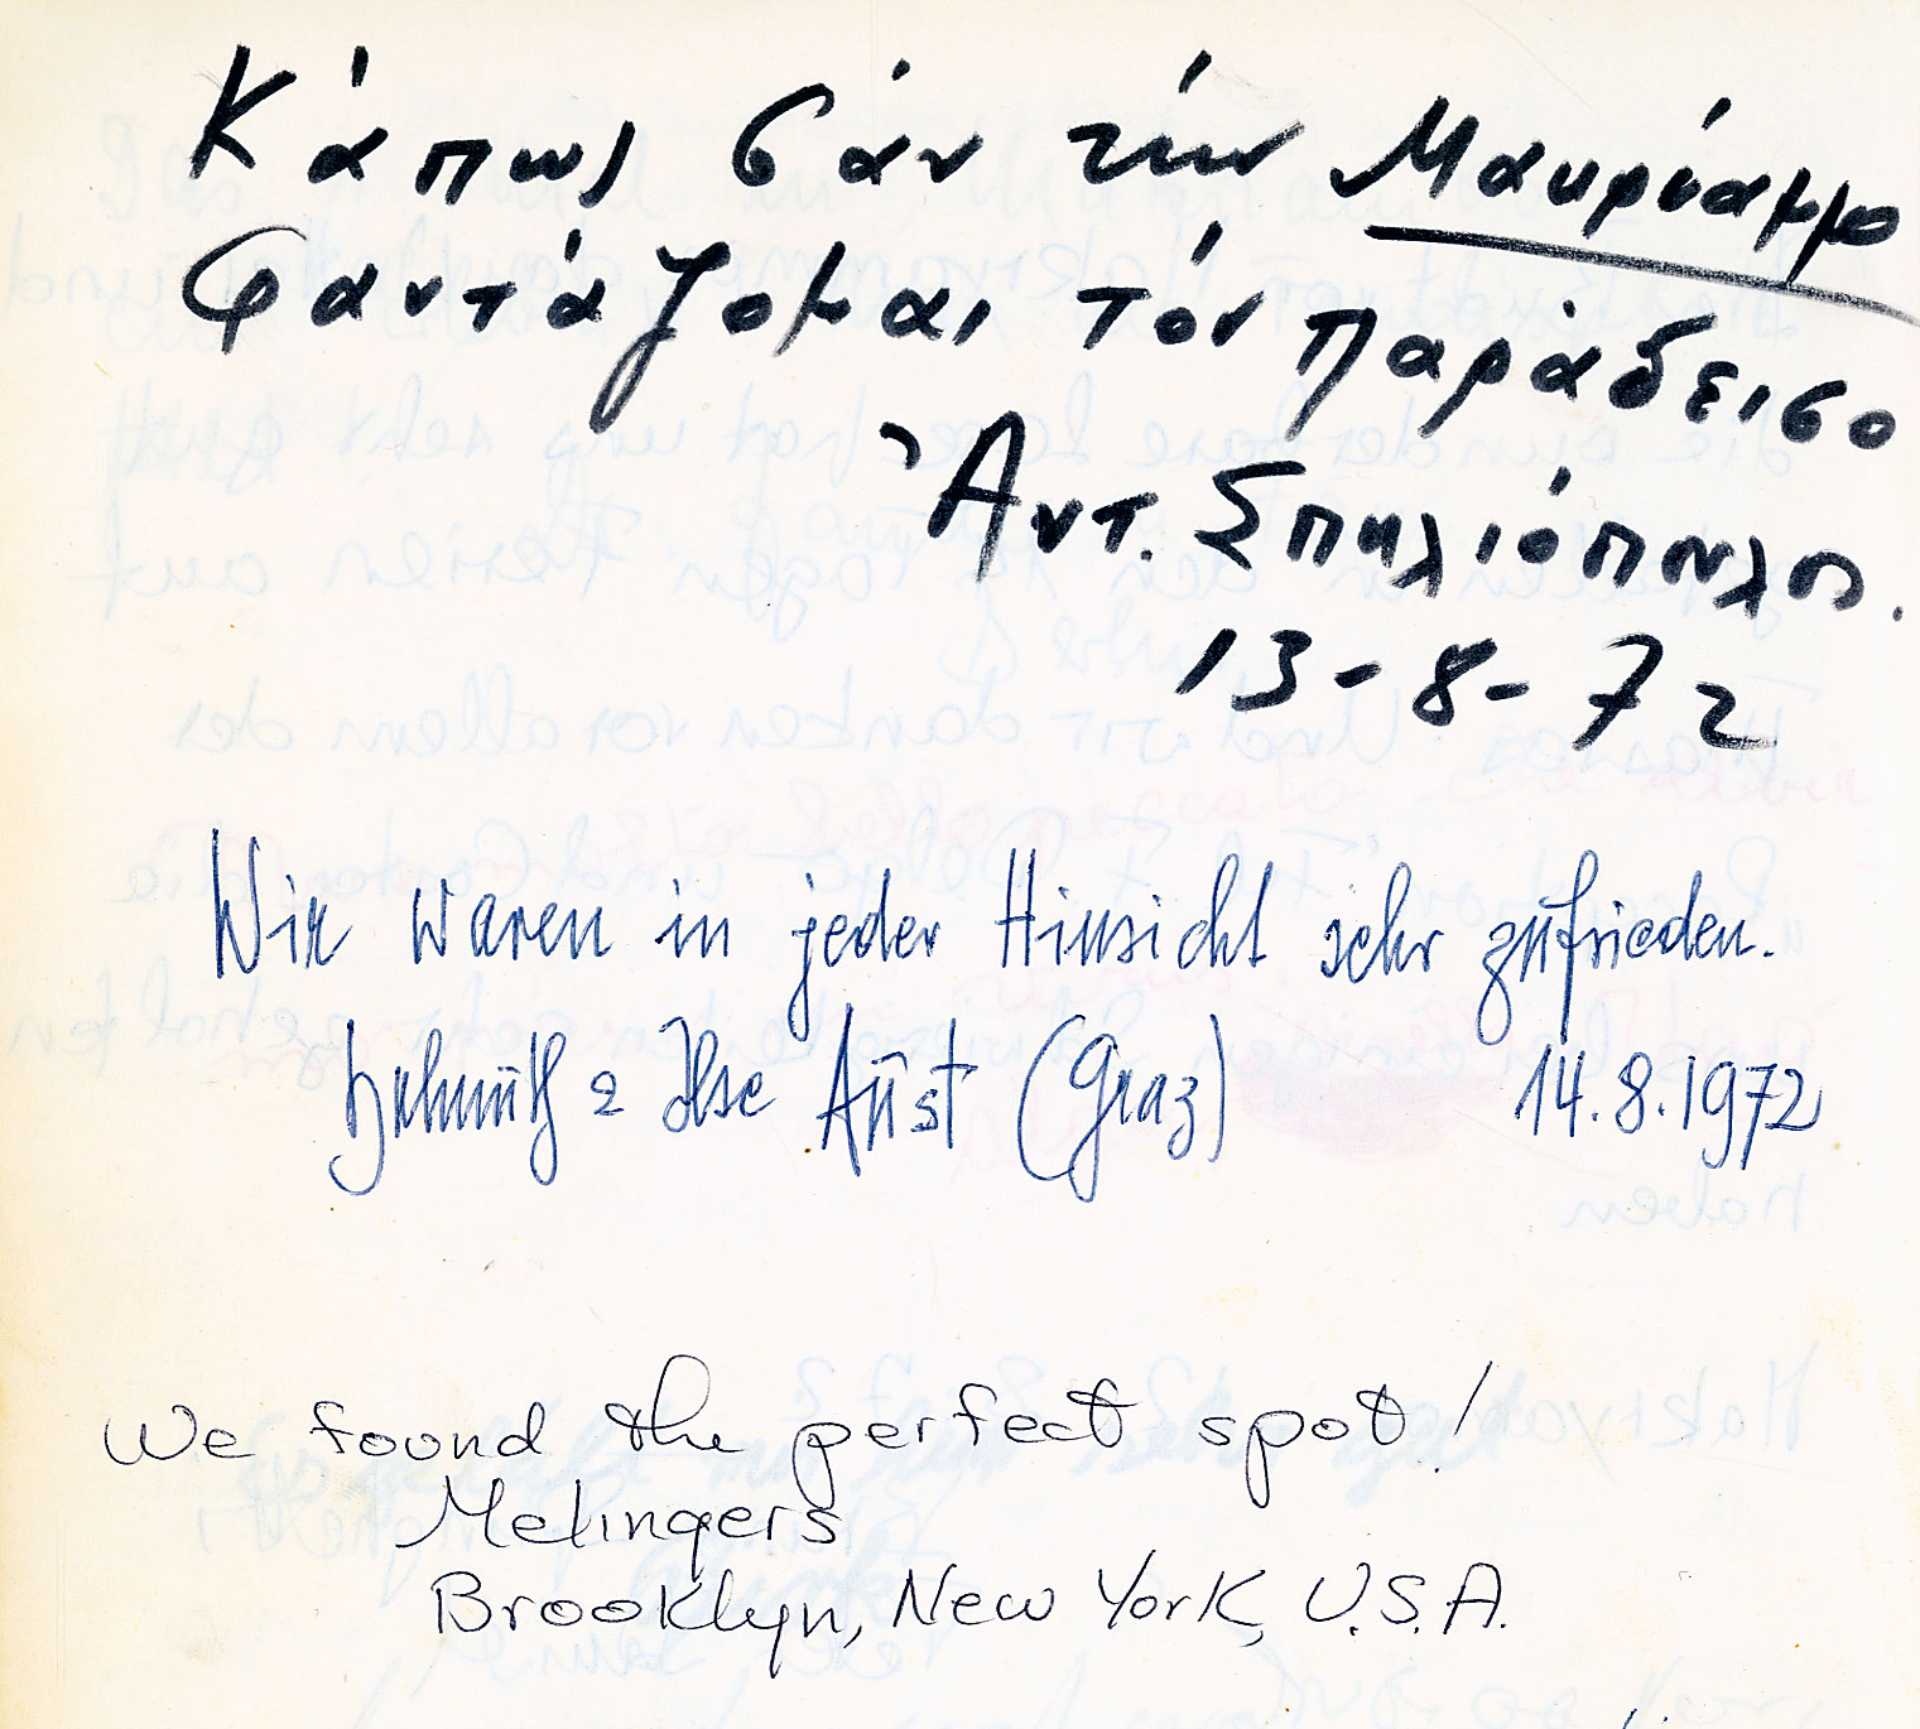 Κάπως σάν τήν Μακρύαμμο
Φαντάζομαι τόν Παράδεισο
Ἀντ. Σπηλιόπουλος.
13-8-72
Wir waren in jeder Hinsicht sehr zufrieden.
Helmuth & Ilse Aust (Graz) 14.8.1972
We found the perfect spot!
Melingers
Brooklyn, New York, U.S.A.